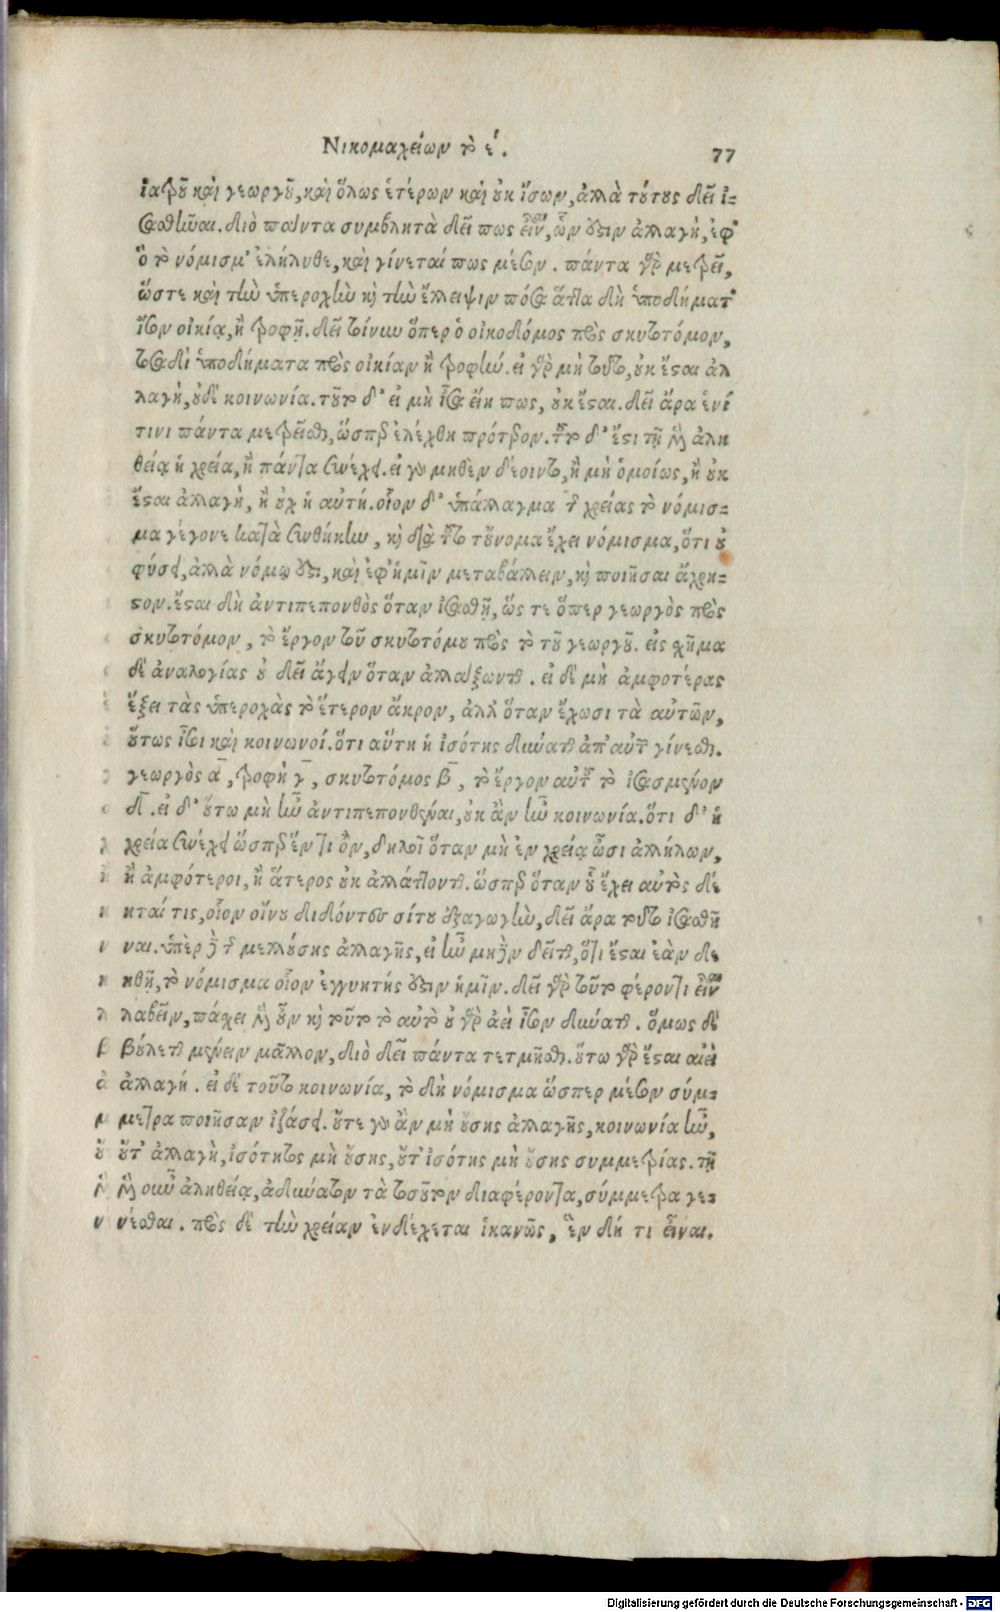 Νικομαχείων τὸ ε΄.
77
ἰατροῦ καὶ γεωργοῦ, καὶ ὅλως ἑτέρων καὶ οὐκ ἴσων, ἀλλὰ τούτους δεῖ ἰ-
σασθῆναι. διὸ πάντα συμβλητὰ δεῖ πως εἶναι, ὧν ἐστιν ἀλλαγή, ἐφ'
ὃ τὸ νόμισμ' ἐλήλυθε, καὶ γίνεταί πως μέσον. πάντα γὰρ μετρεῖ,
ὥστε καὶ τὴν ὑπεροχὴν καὶ τὴν ἔλλειψιν πόσα ἄττα δὴ ὑποδήματ'
ἴσον οἰκίᾳ, ἢ τροφῇ. δεῖ τοίνυν ὅπερ ὁ οἰκοδόμος πρὸς σκυτοτόμον,
τοσαδὶ ὑποδήματα πρὸς οἰκίαν ἢ τροφήν. εἰ γὰρ μὴ τοῦτο, οὐκ ἔσται ἀλ
λαγή, οὐδὲ κοινωνία. τοῦτο δ' εἰ μὴ ἴσα εἴη πως, οὐκ ἔσται. δεῖ ἄρα ἑνί
τινι πάντα μετρεῖσθαι, ὥσπερ ἐλέχθη πρότερον. τοῦτο δ' ἔστι τῇ μὲν ἀλη
θείᾳ ἡ χρεία, ἣ πάντα συνέχει. εἰ γὰρ μηθὲν δέοιντο, ἢ μὴ ὁμοίως, ἢ οὐκ
ἔσται ἀλλαγή, ἢ οὐχ ἡ αὐτή. οἷον δ' ὑπάλλαγμα τῆς χρείας τὸ νόμισ-
μα γέγονε κατὰ συνθήκην, καὶ διὰ τοῦτο τοὔνομα ἔχει νόμισμα, ὅτι οὐ
φύσει, ἀλλὰ νόμῳ ἐστί, καὶ ἐφ' ἡμῖν μεταβάλλειν, καὶ ποιῆσαι ἄχρη-
στον. ἔσται δὴ ἀντιπεπονθὸς ὅταν ἰσασθῇ, ὥς τε ὅπερ γεωργὸς πρὸς
σκυτοτόμον, τὸ ἔργον τοῦ σκυτοτόμου πρὸς τὸ τοῦ γεωργοῦ. εἰς σχῆμα
δὲ ἀναλογίας οὐ δεῖ ἄγειν ὅταν ἀλλάξωνται. εἰ δὲ μὴ ἀμφοτέρας
ἕξει τὰς ὑπεροχὰς τὸ ἕτερον ἄκρον, ἀλλ' ὅταν ἔχωσι τὰ αὐτῶν,
οὕτως ἴσοι καὶ κοινωνοί. ὅτι αὕτη ἡ ἰσότης δύναται ἐπ' αὐτῶν γίνεσθαι.
γεωργὸς α, τροφὴ γ, σκυτοτόμος β, τὸ ἔργον αὐτοῦ τὸ ἰσασμένον
δ. εἰ δ' οὕτω μὴ ἦν ἀντιπεπονθέναι, οὐκ ἂν ἦν κοινωνία. ὅτι δ' ἡ
χρεία συνέχει ὥσπερ ἕν τι ὄν, δηλοῖ ὅταν μὴ ἐν χρείᾳ ὦσι ἀλλήλων,
ἢ ἀμφότεροι, ἢ ἅτερος οὐκ ἀλλάττονται. ὥσπερ ὅταν οὗ ἔχει αὐτὸς δέ
ηταί τις, οἷον οἴνου διδόντες σίτου ἐξαγωγήν, δεῖ ἄρα τοῦτο ἰσασθῆ
ναι. ὑπὲρ δὲ τῆς μελλούσης ἀλλαγῆς, εἰ νῦν μηδὲν δεῖται, ὅτι ἔσται ἐὰν δε
ηθῇ, τὸ νόμισμα οἷον ἐγγυητής ἐστιν ἡμῖν. δεῖ γὰρ τοῦτο φέροντι εἶναι
λαβεῖν, πάσχει μὲν οὖν καὶ τοῦτο τὸ αὐτὸ οὐ γὰρ ἀεὶ ἴσον δύναται. ὅμως δὲ
βούλεται μένειν μᾶλλον, διὸ δεῖ πάντα τετιμῆσθαι. οὕτω γὰρ ἔσται αἰεὶ
ἀλλαγή. εἰ δὲ τοῦτο κοινωνία, τὸ δὴ νόμισμα ὥσπερ μέτρον σύμ-
μετρα ποιῆσαν ἰσάζει. οὔτε γὰρ ἂν μὴ οὔσης ἀλλαγῆς, κοινωνία ἦν,
οὔτ' ἀλλαγή, ἰσότητος μὴ οὔσης, οὔτ' ἰσότης μὴ οὔσης συμμετρίας. τῇ
μὲν οὖν ἀληθείᾳ, ἀδύνατον τὰ τοσοῦτον διαφέροντα, σύμμετρα γε-
νέσθαι. πρὸς δὲ τὴν χρείαν ἐνδέχεται ἱκανῶς, ἓν δή τι εἶναι.
Digitalisierung gefördert durch die Deutsche Forschungsgemeinschaft - DFG